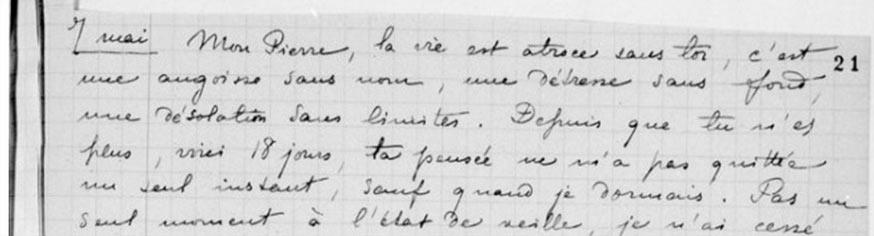 7 mai Mon Pierre, la vie est atroce sans toi, c'est 21
une angoisse sans nom, une détresse sans fond,
une désolation sans limites. Depuis que tu n'es
plus, voici 18 jours, ta pensée ne m'a pas quittée
un seul instant, sauf quand je dormais. Pas un
seul moment à l'état de veille, je n'ai cessé